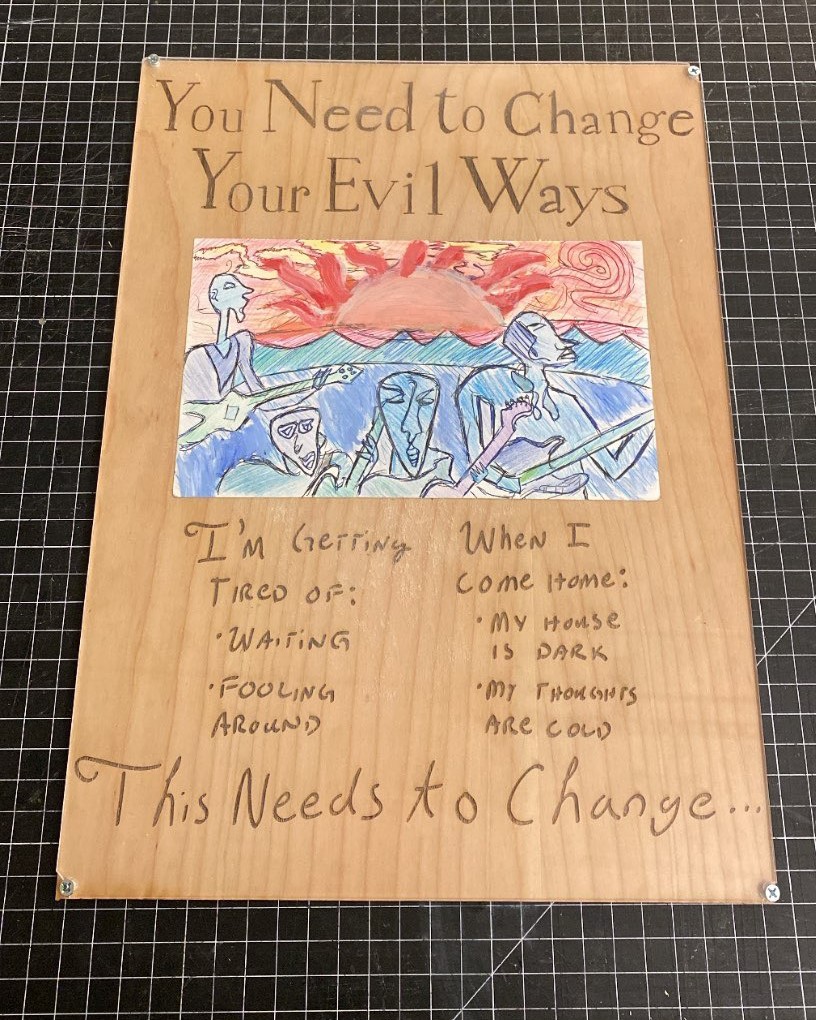 You Need to Change
Your Evil Ways
I'm Getting
Tired of:
• Waiting
• Fooling
Around
When I
Come Home:
• My House
is Dark
• My Thoughts
Are Cold
This Needs to Change...